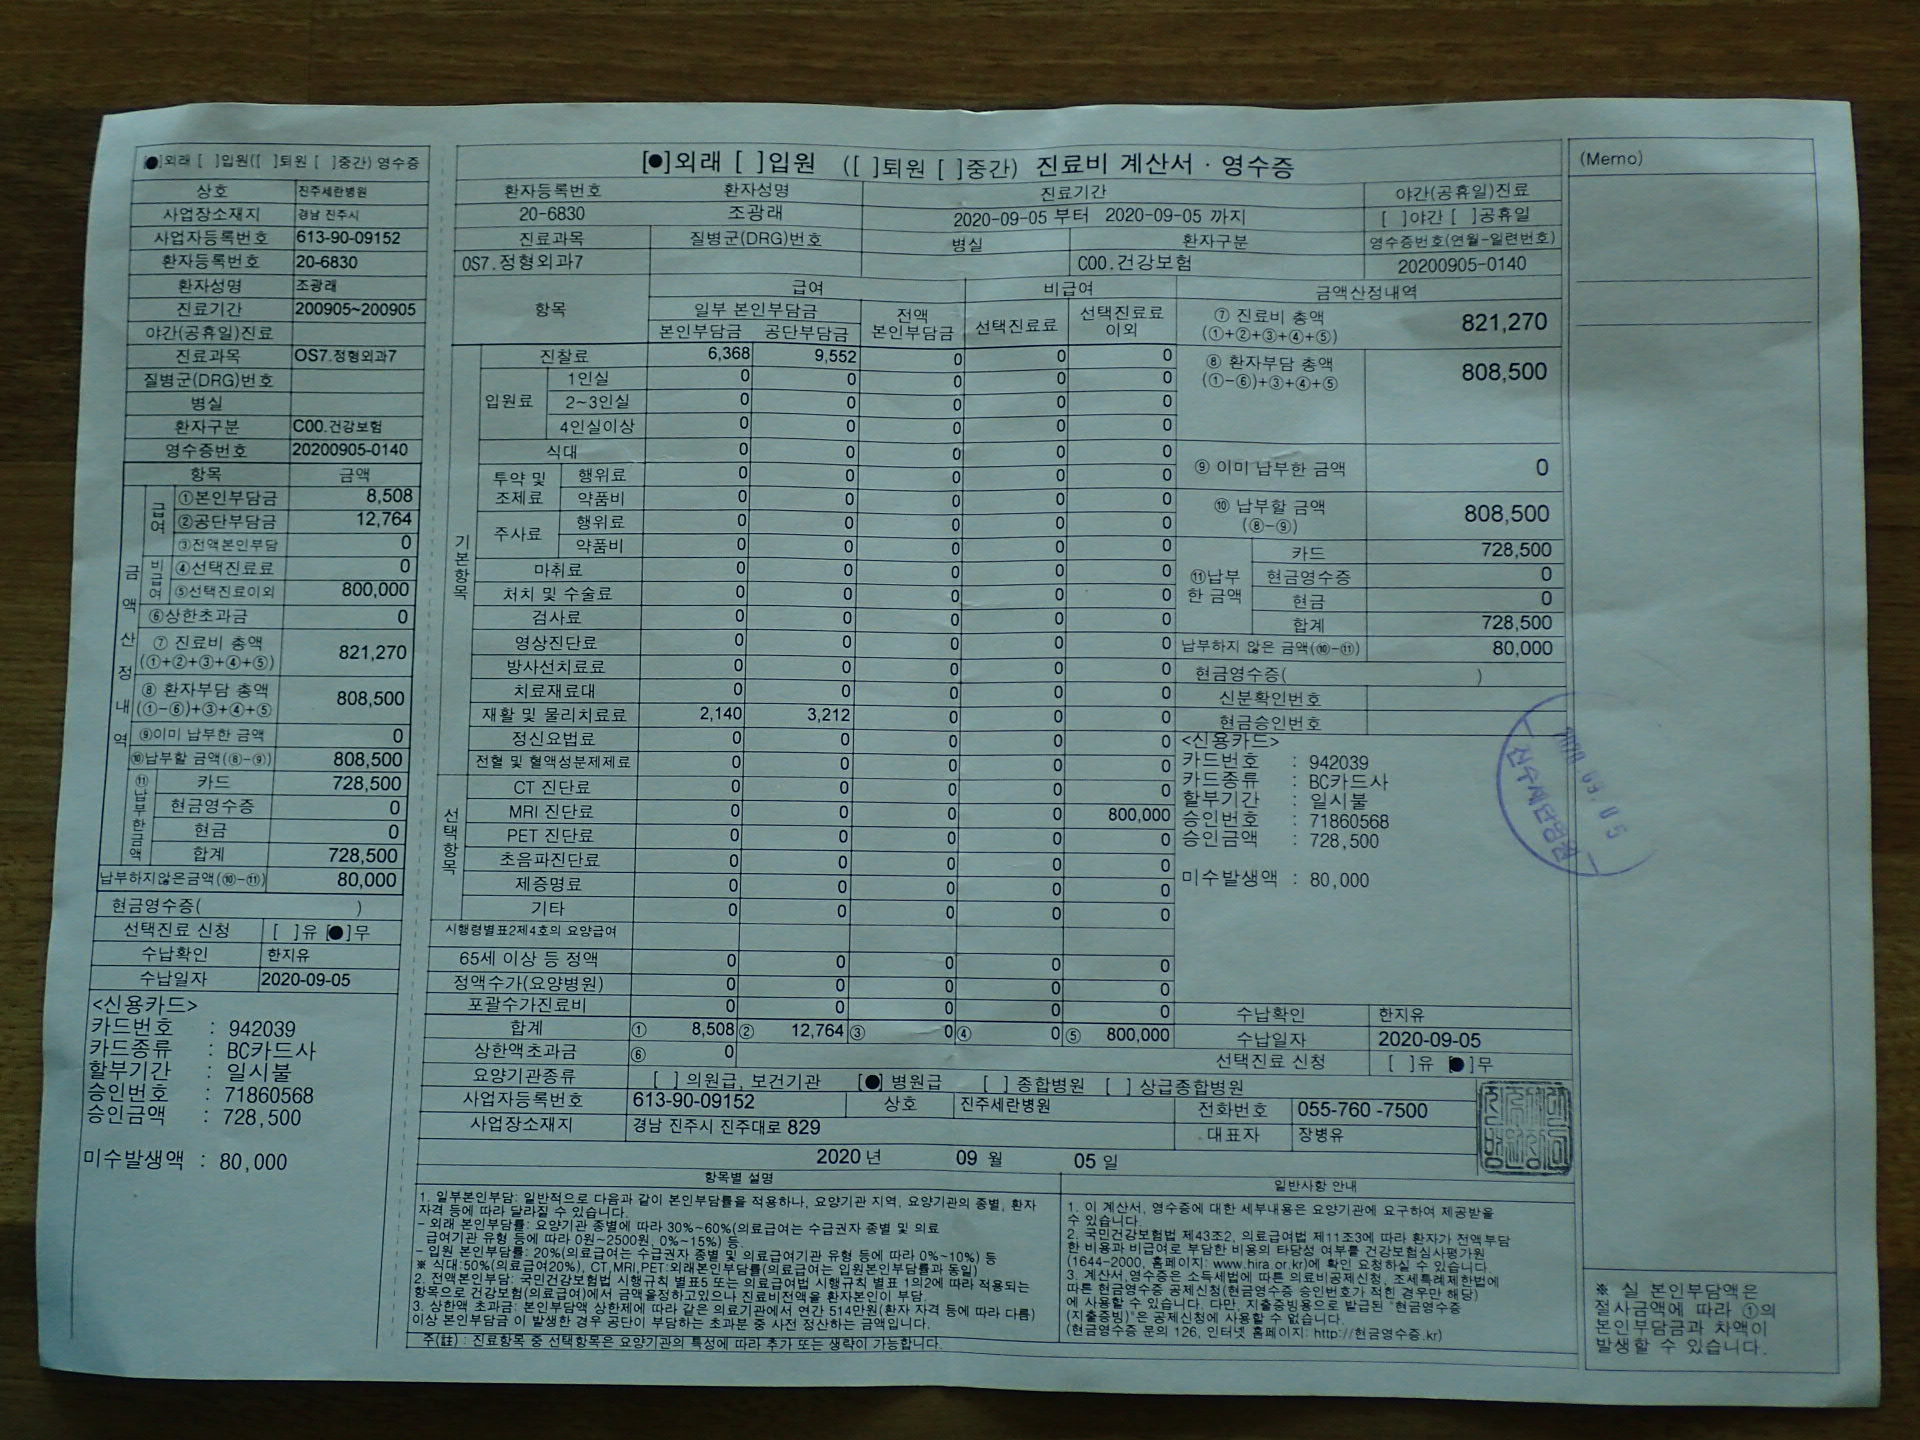 [●]외래 [ ]입원([ ]퇴원 [ ]중간) 영수증
상호 진주세란병원
사업장소재지 경남 진주시
사업자등록번호 613-90-09152
환자등록번호 20-6830
환자성명 조광래
진료기간 200905~200905
야간(공휴일)진료
진료과목 OS7.정형외과7
질병군(DRG)번호
병실
환자구분 C00.건강보험
영수증번호 20200905-0140
항목 금액
금액산정내역
급여
①본인부담금 8,508
②공단부담금 12,764
③전액본인부담 0
비급여
④선택진료료 0
⑤선택진료이외 800,000
⑥상한초과금 0
⑦ 진료비 총액
(①+②+③+④+⑤) 821,270
⑧ 환자부담 총액
(①-⑥)+③+④+⑤ 808,500
⑨이미 납부한 금액 0
⑩납부할 금액(⑧-⑨) 808,500
⑪납부한금액
카드 728,500
현금영수증 0
현금 0
합계 728,500
납부하지않은금액(⑩-⑪) 80,000
현금영수증( )
선택진료 신청 [ ]유 [●]무
수납확인 한지유
수납일자 2020-09-05
<신용카드>
카드번호 : 942039
카드종류 : BC카드사
할부기간 : 일시불
승인번호 : 71860568
승인금액 : 728,500
미수발생액 : 80,000
[●]외래 [ ]입원 ([ ]퇴원 [ ]중간) 진료비 계산서 · 영수증
환자등록번호 환자성명 진료기간 야간(공휴일)진료
20-6830 조광래 2020-09-05 부터 2020-09-05 까지 [ ]야간 [ ]공휴일
진료과목 질병군(DRG)번호 병실 환자구분 영수증번호(연월-일련번호)
OS7.정형외과7 C00.건강보험 20200905-0140
항목 급여 비급여 금액산정내역
일부 본인부담금 전액 본인부담금 선택진료료 선택진료료 이외
본인부담금 공단부담금
기본항목
진찰료 6,368 9,552 0 0 0
입원료
1인실 0 0 0 0 0
2~3인실 0 0 0 0 0
4인실이상 0 0 0 0 0
식대 0 0 0 0 0
투약 및 조제료
행위료 0 0 0 0 0
약품비 0 0 0 0 0
주사료
행위료 0 0 0 0 0
약품비 0 0 0 0 0
마취료 0 0 0 0 0
처치 및 수술료 0 0 0 0 0
검사료 0 0 0 0 0
영상진단료 0 0 0 0 0
방사선치료료 0 0 0 0 0
치료재료대 0 0 0 0 0
재활 및 물리치료료 2,140 3,212 0 0 0
정신요법료 0 0 0 0 0
전혈 및 혈액성분제제료 0 0 0 0 0
선택항목
CT 진단료 0 0 0 0 0
MRI 진단료 0 0 0 0 800,000
PET 진단료 0 0 0 0 0
초음파진단료 0 0 0 0 0
제증명료 0 0 0 0 0
기타 0 0 0 0 0
시행령별표2제4호의 요양급여
65세 이상 등 정액 0 0 0 0 0
정액수가(요양병원) 0 0 0 0 0
포괄수가진료비 0 0 0 0 0
합계 ① 8,508 ② 12,764 ③ 0 ④ 0 ⑤ 800,000
상한액초과금 ⑥ 0
⑦ 진료비 총액
(①+②+③+④+⑤) 821,270
⑧ 환자부담 총액
(①-⑥)+③+④+⑤ 808,500
⑨ 이미 납부한 금액 0
⑩ 납부할 금액
(⑧-⑨) 808,500
⑪납부한 금액
카드 728,500
현금영수증 0
현금 0
합계 728,500
납부하지 않은 금액(⑩-⑪) 80,000
현금영수증( )
신분확인번호
현금승인번호
<신용카드>
카드번호 : 942039
카드종류 : BC카드사
할부기간 : 일시불
승인번호 : 71860568
승인금액 : 728,500
미수발생액 : 80,000
수납확인 한지유
수납일자 2020-09-05
선택진료 신청 [ ]유 [●]무
요양기관종류 [ ] 의원급, 보건기관 [●] 병원급 [ ] 종합병원 [ ] 상급종합병원
사업자등록번호 613-90-09152 상호 진주세란병원 전화번호 055-760 -7500
사업장소재지 경남 진주시 진주대로 829 대표자 장병유
2020 년 09 월 05 일
항목별 설명
1. 일부본인부담: 일반적으로 다음과 같이 본인부담률을 적용하나, 요양기관 지역, 요양기관의 종별, 환자
자격 등에 따라 달라질 수 있습니다.
- 외래 본인부담률: 요양기관 종별에 따라 30%~60%(의료급여는 수급권자 종별 및 의료
급여기관 유형 등에 따라 0원~2500원, 0%~15%) 등
- 입원 본인부담률: 20%(의료급여는 수급권자 종별 및 의료급여기관 유형 등에 따라 0%~10%) 등
※ 식대:50%(의료급여20%), CT,MRI,PET:외래본인부담률(의료급여는 입원본인부담률과 동일)
2. 전액본인부담: 국민건강보험법 시행규칙 별표5 또는 의료급여법 시행규칙 별표 1의2에 따라 적용되는
항목으로 건강보험(의료급여)에서 금액을정하고있으나 진료비전액을 환자본인이 부담.
3. 상한액 초과금: 본인부담액 상한제에 따라 같은 의료기관에서 연간 514만원(환자 자격 등에 따라 다름)
이상 본인부담금 이 발생한 경우 공단이 부담하는 초과분 중 사전 정산하는 금액입니다.
주(註) : 진료항목 중 선택항목은 요양기관의 특성에 따라 추가 또는 생략이 가능합니다.
일반사항 안내
1. 이 계산서, 영수증에 대한 세부내용은 요양기관에 요구하여 제공받을
수 있습니다.
2. 국민건강보험법 제43조2, 의료급여법 제11조3에 따라 환자가 전액부담
한 비용과 비급여로 부담한 비용의 타당성 여부를 건강보험심사평가원
(1644-2000, 홈페이지: www.hira.or.kr)에 확인 요청하실 수 있습니다.
3. 계산서,영수증은 소득세법에 따른 의료비공제신청, 조세특례제한법에
따른 현금영수증 공제신청(현금영수증 승인번호가 적힌 경우만 해당)
에 사용할 수 있습니다. 다만, 지출증빙용으로 발급된 "현금영수증
(지출증빙)"은 공제신청에 사용할 수 없습니다.
(현금영수증 문의 126, 인터넷 홈페이지: http://현금영수증.kr)
(Memo)
※ 실 본인부담액은
절사금액에 따라 ①의
본인부담금과 차액이
발생할 수 있습니다.